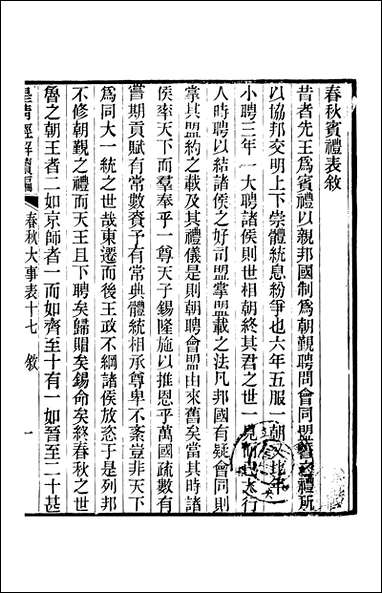 春秋賓禮表敘
昔者先王爲賓禮以親邦國制爲朝覲聘問會同盟誓之禮所
以協邦交明上下崇體統息紛爭也六年五服一朝又比年
小聘三年一大聘諸侯則世相朝終其君之世一見而已大行
人時聘以結諸侯之好司盟掌盟載之法凡邦國有疑會同則
掌其盟約之載及其禮儀是則朝聘會盟由來舊矣當其時諸
侯率天下而羣奉乎一尊天子錫隆施以推恩乎萬國疏數有
嘗期貢賦有常數賚予有常典體統相承尊卑不紊豈非天下
爲同大一統之世哉東遷而後王政不綱諸侯放恣于是列邦
不修朝覲之禮而天王且下聘矣歸賵矣錫命矣終春秋之世
魯之朝王者二如京師者一而如齊至十有一如晉至二十甚
皇清經解續編 春秋大事表十七 敘 一